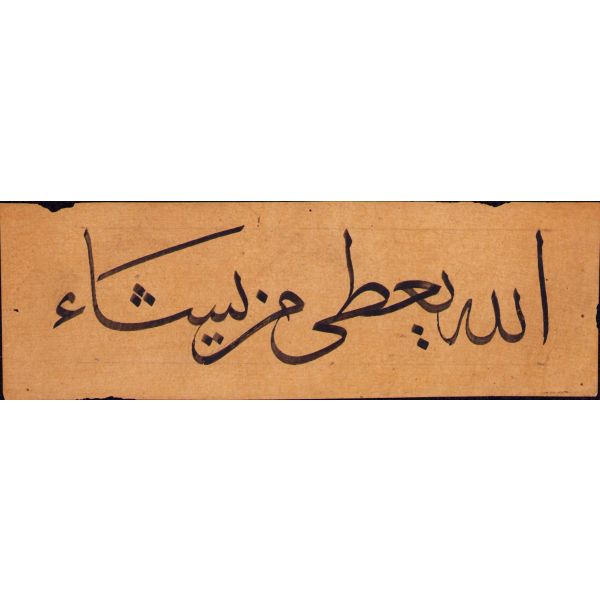 الله يعطى من يشاء